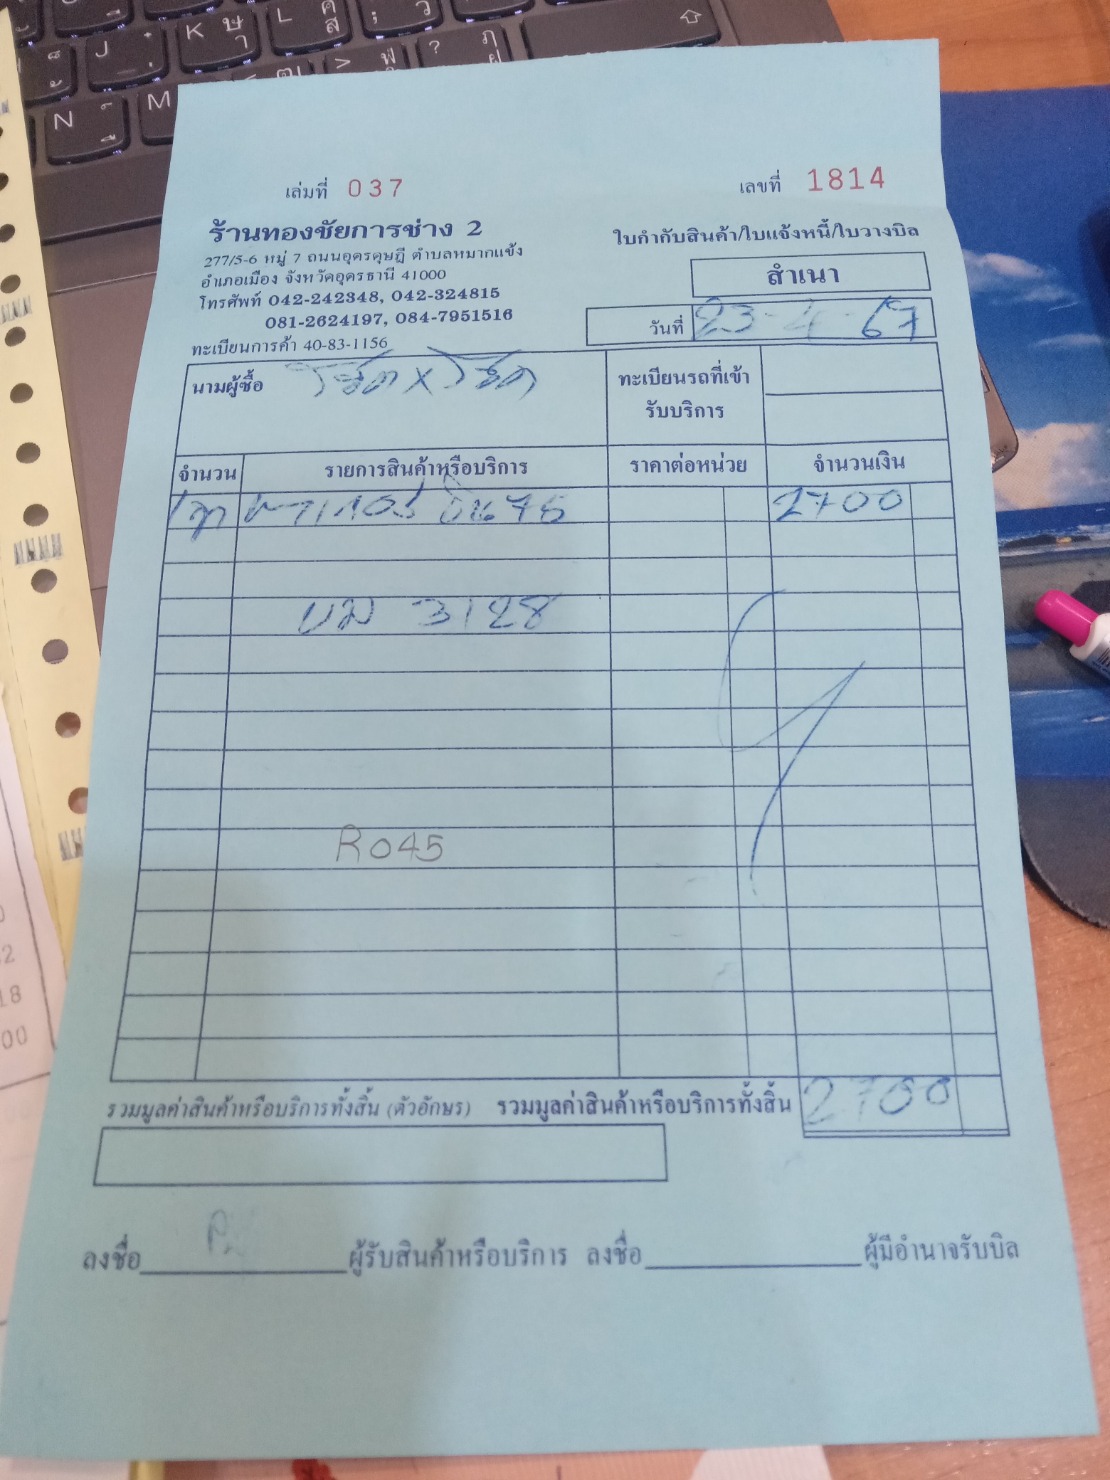 เล่มที่ 037
เลขที่ 1814
ร้านทองชัยการช่าง 2
277/5-6 หมู่ 7 ถนนอุดรดุษฎี ตำบลหมากแข้ง
อำเภอเมือง จังหวัดอุดรธานี 41000
โทรศัพท์ 042-242348, 042-324815
081-2624197, 084-7951516
ทะเบียนการค้า 40-83-1156
ใบกำกับสินค้า/ใบแจ้งหนี้/ใบวางบิล
สำเนา
วันที่ 23-4-67
นามผู้ซื้อ
ทะเบียนรถที่เข้า
รับบริการ
จำนวน รายการสินค้าหรือบริการ ราคาต่อหน่วย จำนวนเงิน
2700
บม 3128
R045
รวมมูลค่าสินค้าหรือบริการทั้งสิ้น (ตัวอักษร) รวมมูลค่าสินค้าหรือบริการทั้งสิ้น 2700
ลงชื่อ ผู้รับสินค้าหรือบริการ ลงชื่อ ผู้มีอำนาจรับบิล